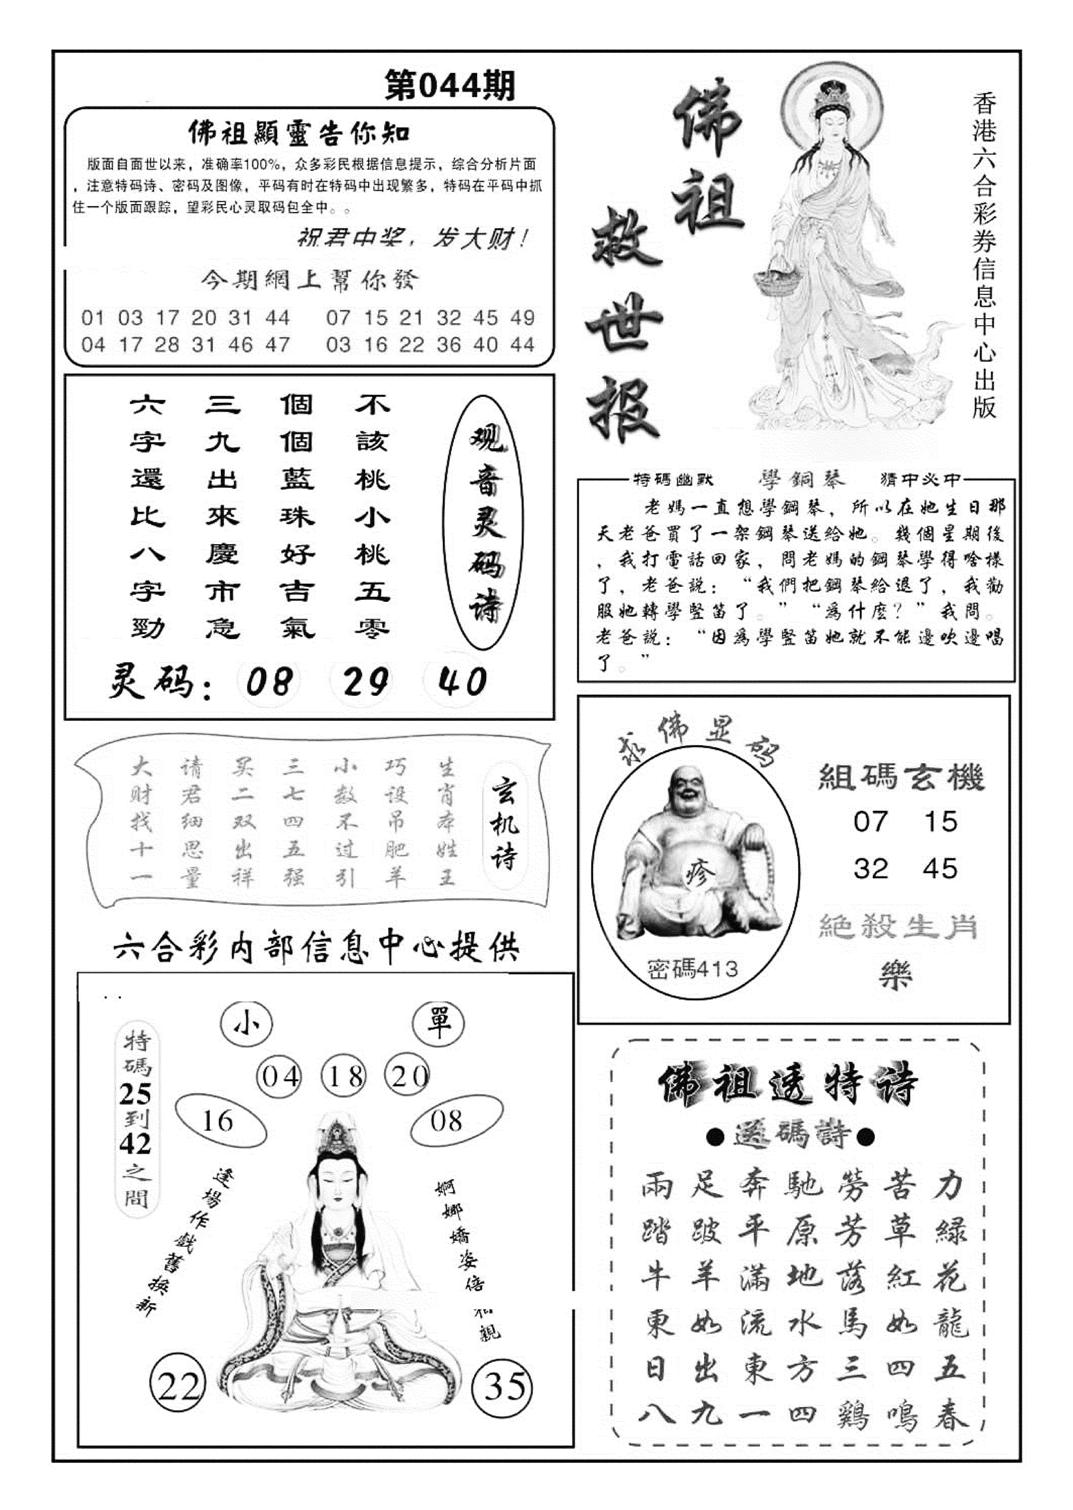 第044期
佛祖顯靈告你知
版面自面世以来，准确率100%，众多彩民根据信息提示，综合分析片面
，注意特码诗、密码及图像，平码有时在特码中出现繁多，特码在平码中抓
住一个版面跟踪，望彩民心灵取码包全中。。
祝君中奖，发大财！
今期網上幫你發
01 03 17 20 31 44 07 15 21 32 45 49
04 17 28 31 46 47 03 16 22 36 40 44
佛祖
救世报
香港六合彩券信息中心出版
观音灵码诗
不該桃小桃五零
個個藍珠好吉氣
三九出來慶市急
六字還比八字勁
灵码：08 29 40
特碼幽默 學銅琴 猜中必中
老媽一直想學鋼琴，所以在她生日那
天老爸買了一架鋼琴送給她。幾個星期後
，我打電話回家，問老媽的鋼琴學得啥樣
了，老爸說：“我們把鋼琴給退了，我勸
服她轉學豎笛了。”“爲什麽？”我問。
老爸説：“因爲學豎笛她就不能邊吹邊唱
了。”
玄机诗
生肖本姓王
巧设吊肥羊
小数不过引
三七四五强
买二双出祥
请君细思量
大财找十一
求佛显码
疹
密碼413
組碼玄機
07 15
32 45
絕殺生肖
樂
六合彩内部信息中心提供
小 單
04 18 20
16 08
特碼25到42之間
逢場作戲舊換新
婀娜嬌姿倍相親
22 35
佛祖透特诗
●送碼詩●
兩足奔馳勞苦力
踏跛平原芳草綠
牛羊滿地落紅花
東如流水馬如龍
日出東方三四五
八九一四鷄鳴春